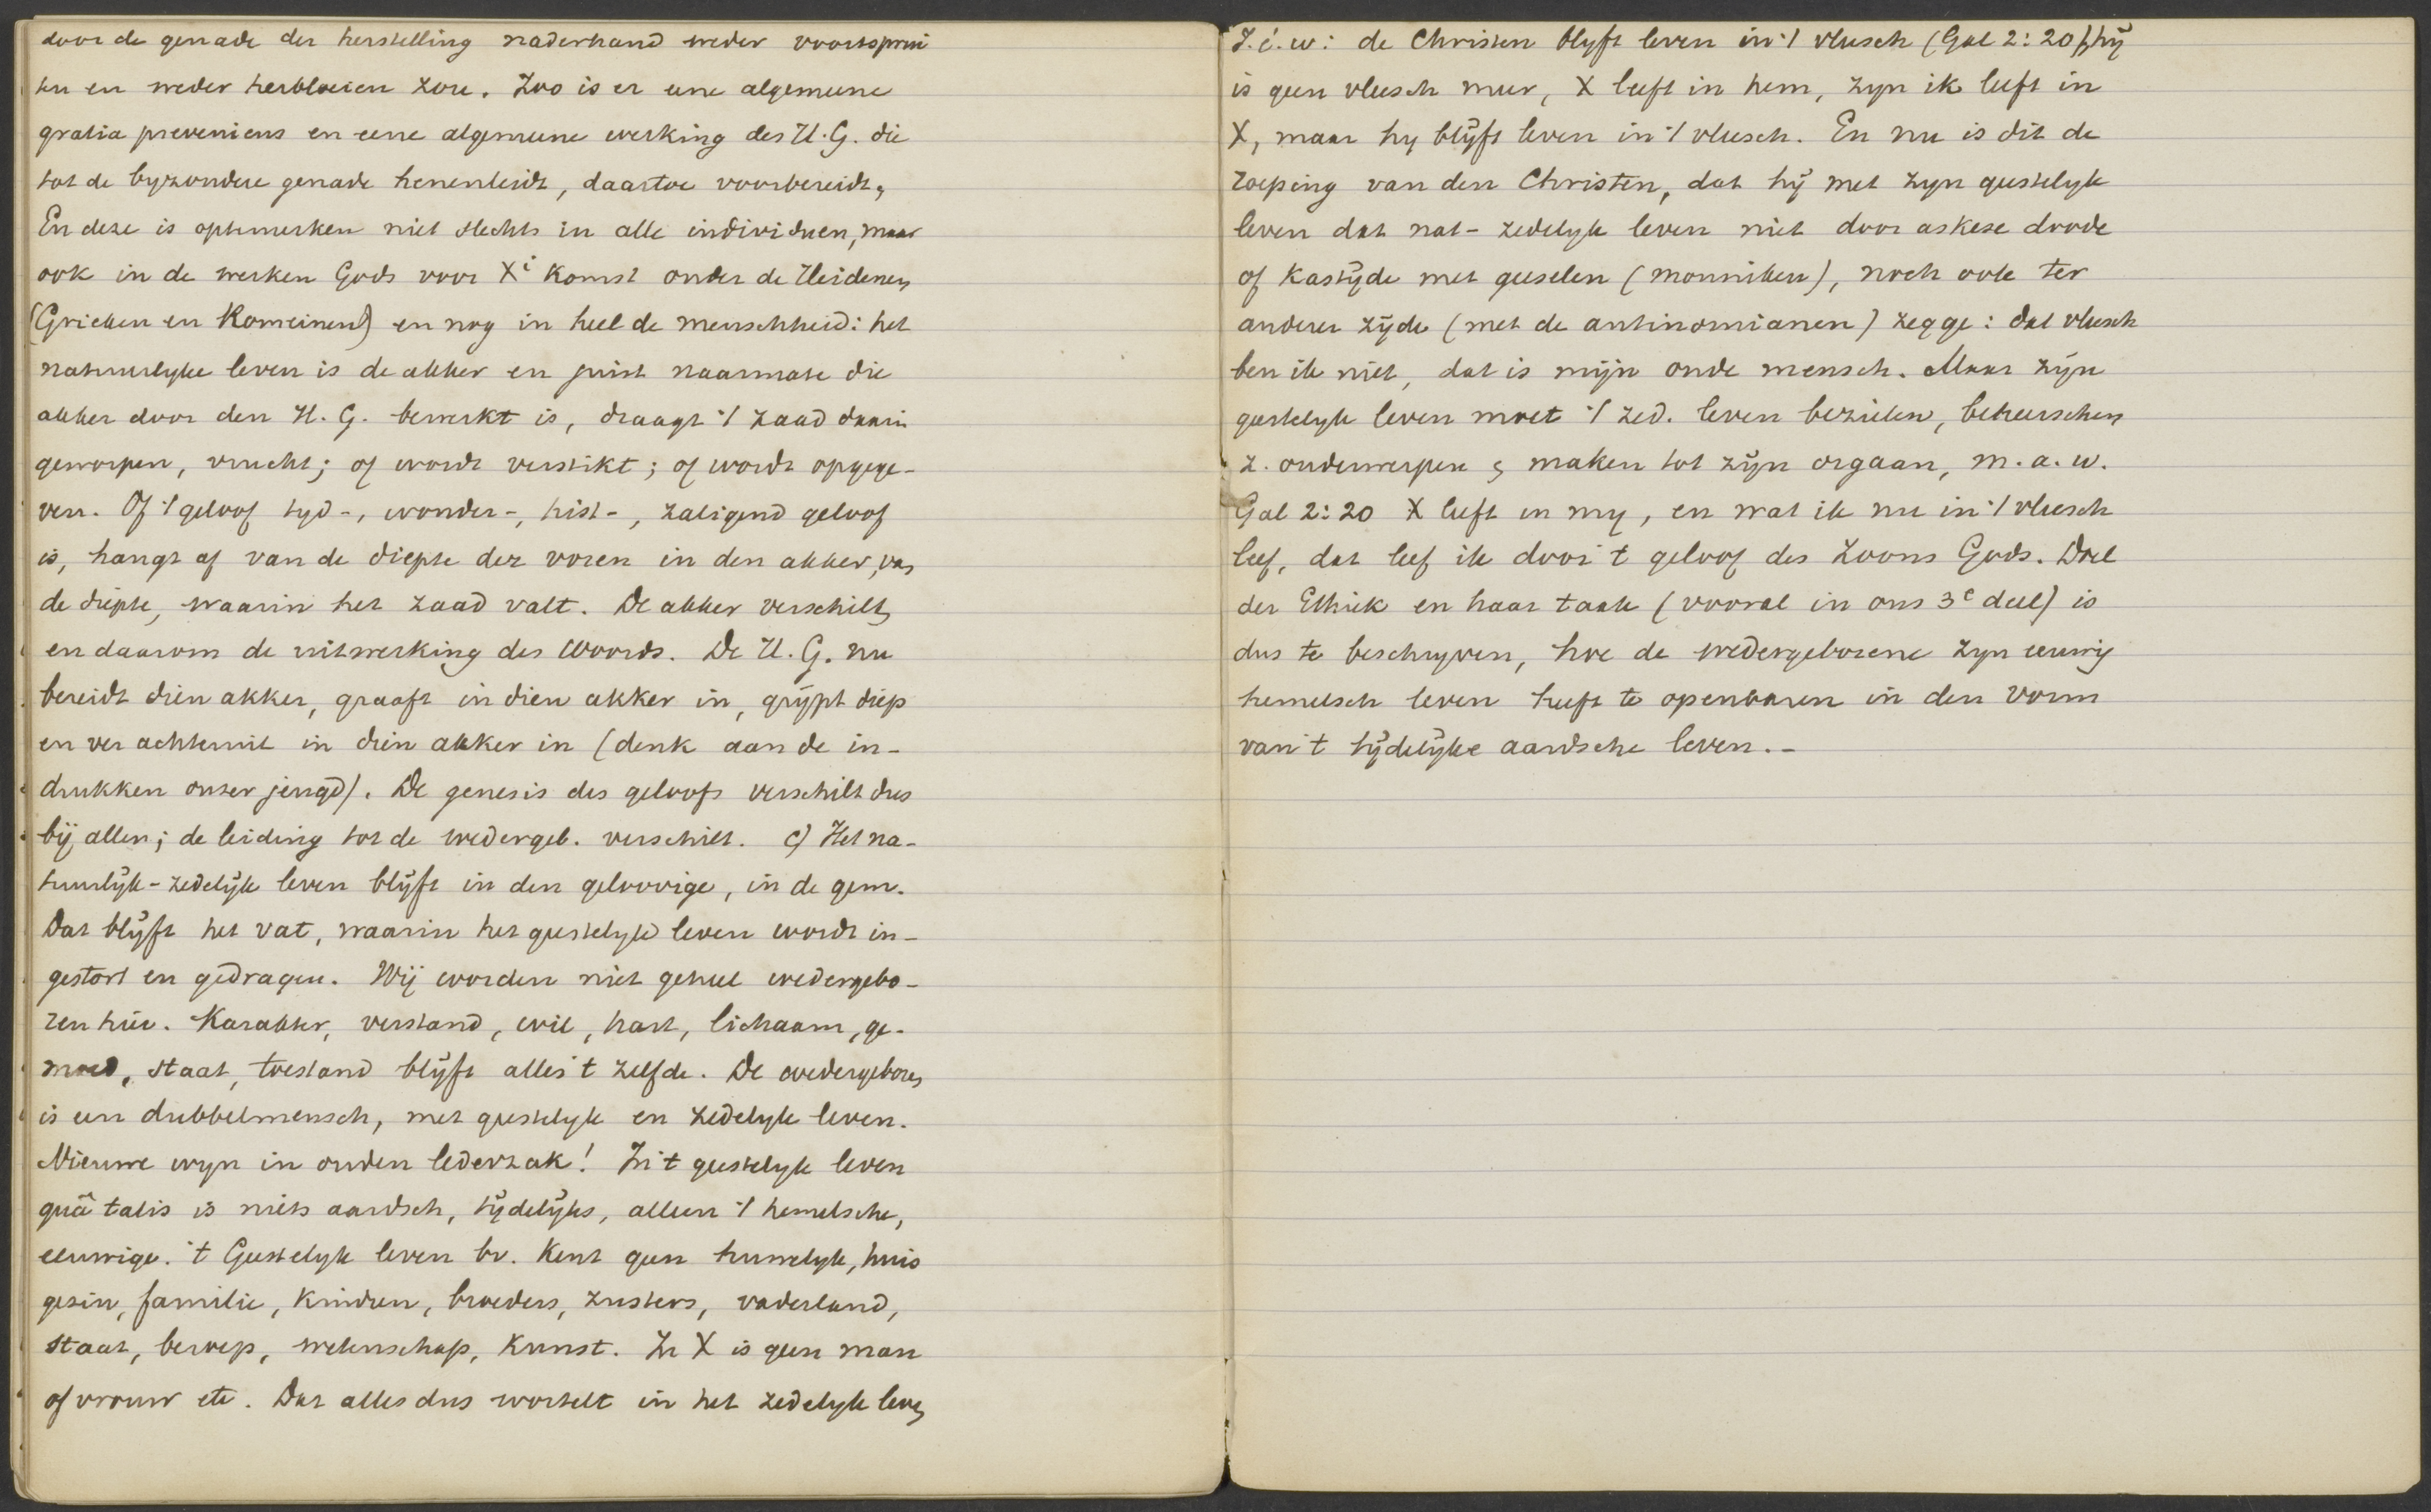 door de genade der herstelling naderhand weder voortsprui
ten en weder herbloeien zou. Zoo is er eene algemeene
gratia preveniens en eene algemeene werking des H.G. die
tot de byzondere genade henenleidt, daartoe voorbereidt,
En deze is optemerken niet slechts in alle individuen, maar
ook in de werken Gods voor Xi Komst onder de Heidenen
(Grieken en Romeinen) en nog in heel de menschheid: het
natuurlyke leven is de akker en juist naarmate die
akker door den H.G. bewerkt is, draagt 't zaad daarin
geworpen, vrucht; of wordt verstikt; of wordt opgege-
ven. Of 't geloof tyd-, wonder-, hist-, zaligend geloof
is, hangt af van de diepte der voren in den akker, van
de diepte, waarin het zaad valt. De akker verschilt,
en daarom de uitwerking des Woords. De H.G. nu
bereidt dien akker, graaft in dien akker in, grijpt diep
en ver achteruit in dien akker in (denk aan de in-
drukken onzer jeugd). De genesis des geloofs verschilt dus
bij allen; de leiding tot de wedergeb. verschilt. c) Het na-
tuurlijk-zedelijk leven blijft in den geloovige, in de gem.
Dat blijft het vat, waarin het geestelyke leven wordt in-
gestort en gedragen. Wij worden niet geheel wedergebo-
ren hier. Karakter, verstand, wil, hart, lichaam, ge-
moed, staat, toestand blijft alles 't zelfde. De wedergeboren
is een dubbelmensch, met geestelyk en zedelyk leven.
Nieuwe wyn in ouden lederzak! In 't geestelyk leven
quâ talis is niets aardsch, tijdelijks, alleen 't hemelsche,
eeuwige. 't Geestelyk leven bv. kent geen huwelyk, huis
gezin, familie, kinderen, broeders, zusters, vaderland,
staat, beroep, wetenschap, kunst. In X is geen man
of vrouw etc. Dat alles dus wortelt in het zedelyk leven
I.é.w: de Christen blyft leven in 't vleesch (Gal 2:20), hij
is geen vleesch meer, X leeft in hem, zyn ik leeft in
X, maar hy blijft leven in 't vleesch. En nu is dit de
roeping van den Christen, dat hij met zyn geestelyk
leven dat nat-zedelyk leven niet door askese doode
of kastijde met geeselen (monniken), noch ook ter
anderer zijde (met de antinomianen) zegge: dat vleesch
ben ik niet, dat is mijn oude mensch. Maar zijn
geestelyk leven moet 't zed. leven bezielen, beheerschen
z. onderwerpen & maken tot zijn orgaan, m.a.w.
Gal 2:20 X leeft in my, en wat ik nu in 't vleesch
leef, dat leef ik door 't geloof des Zoons Gods. Doel
der Ethiek en haar taak (vooral in ons 3e deel) is
dus te beschryven, hoe de wedergeborene zyn eeuwig
hemelsch leven heeft te openbaren in den vorm
van 't tijdelijke aardsche leven.-